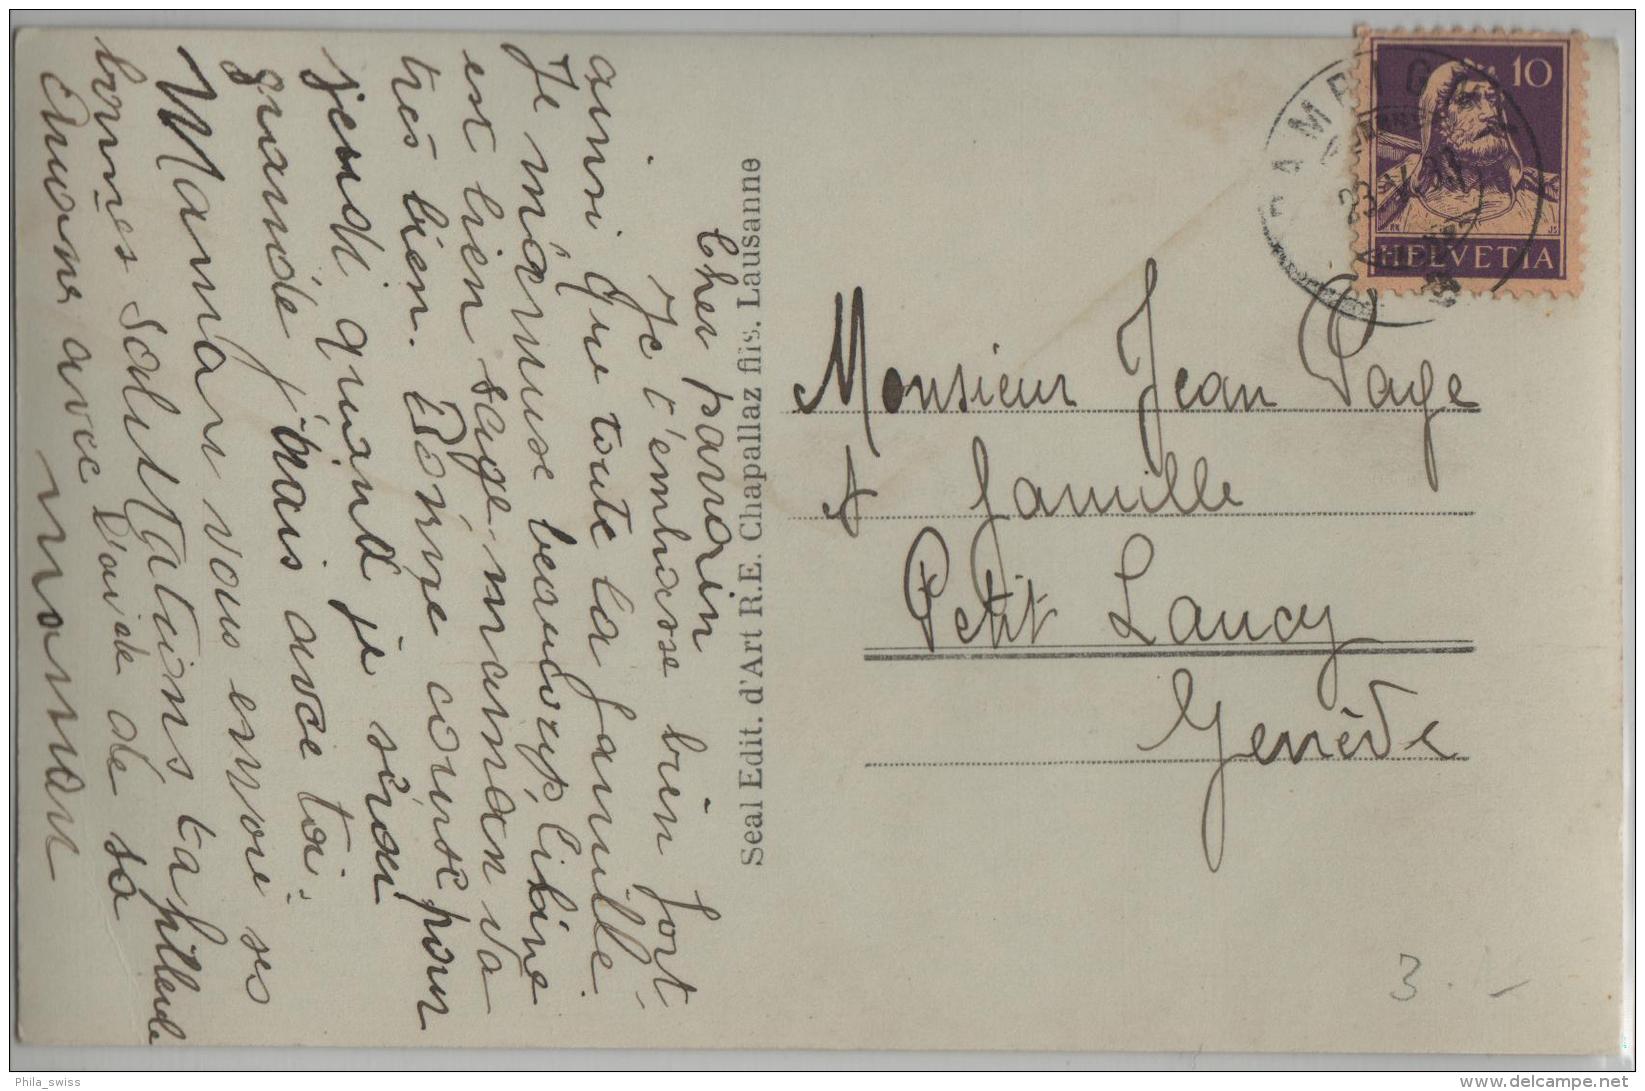 Cher parrain
Je t'embrasse bien fort
ainsi Que toute la famille
Je m'amuse beaucoup, Liline
est bien sage, maman va
très bien. Bonne course pour
jeudi quand je serai
grande j'irais avec toi.
Maman vous envoie ses
bonnes salutations ta fillende
avec l'aide de sa
maman
Seal Edit. d'Art R.E. Chapallaz fils. Lausanne
10
HELVETIA
Monsieur Jean Page
& famille
Petit Lancy
Genève
3.-
Phila_swiss
delcampe.net